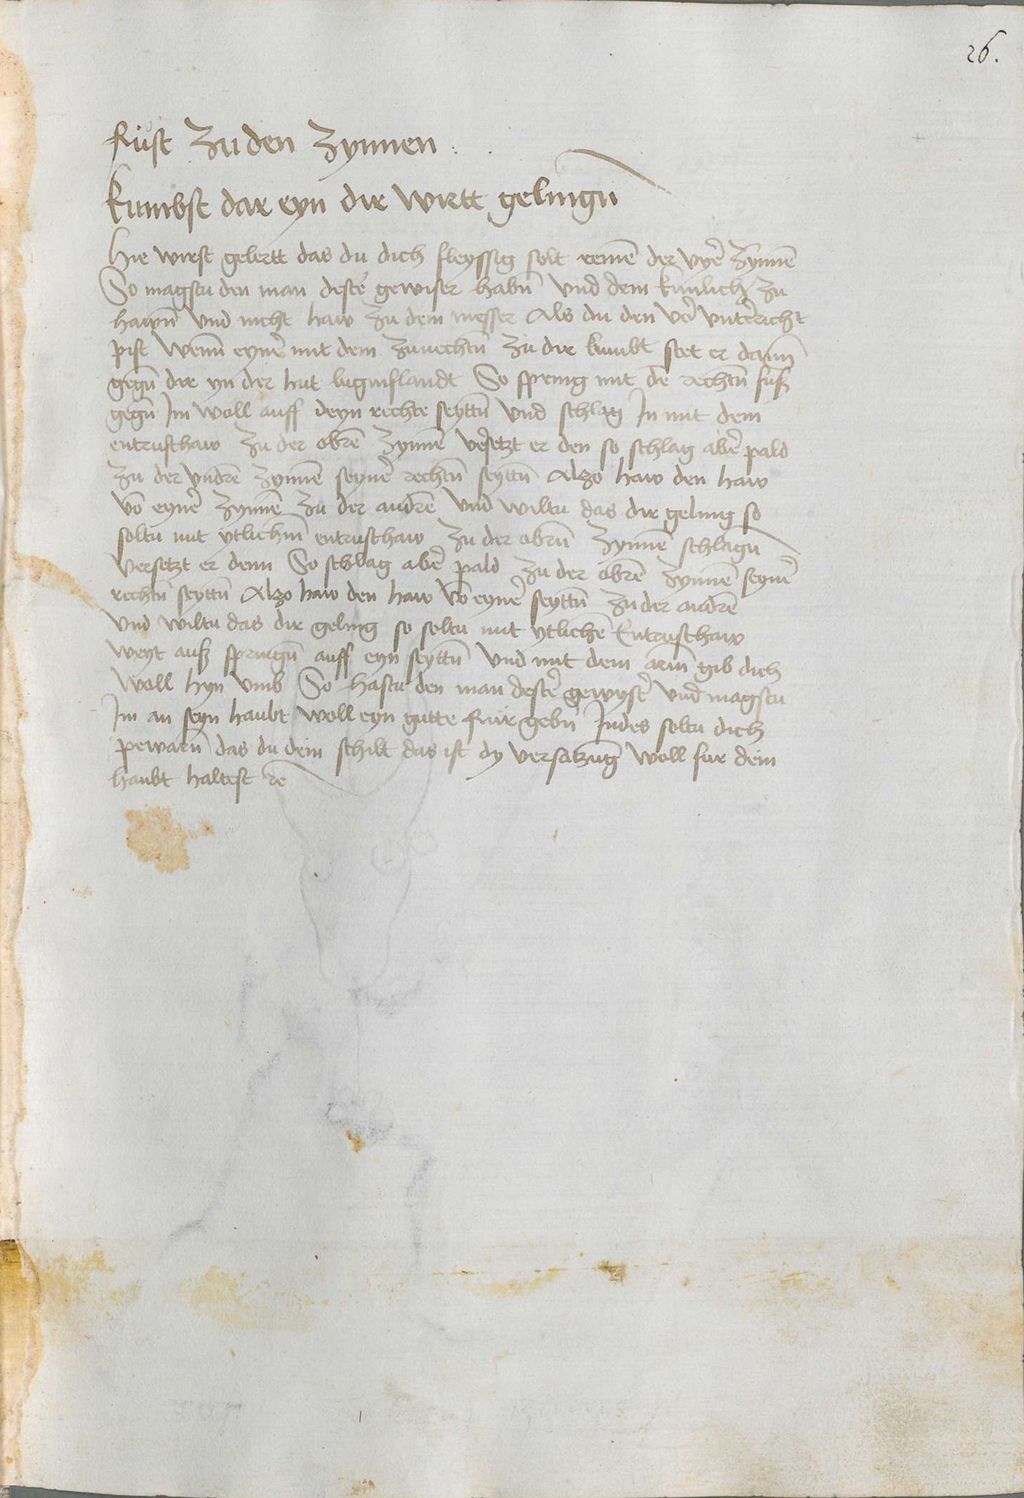 26.
Rüst zu den zynnen
kumbst dar eyn dir wirtt gelingn̄
Hie wirst gelertt das du dich fleyssig solt remē der vyer̄ zynnē
So magstu den man deste gewiser habn̄ vnd dem kunlich zu
hawn̄ vnd nicht haw zu dem messer Als du den vor̄ vnter̄richt
pist wenn̄ eyner̄ mit dem zuuechtn̄ zu dir kumbt stet er dann̄
gegn̄ dir yn der hut luginslandt So spring mit dē rechtn̄ fuß
gegn̄ Im woll auff deyn rechte seyttn̄ vnd schlag In mit dem
entrusthaw zu der obrē zynnē ver̄setzt er den so schlag aber̄ pald
zu der vndrē zynnē seyner̄ rechtn̄ seyttn̄ Alzo haw den haw
vō eyner̄ zynnē zu der andrē vnd wiltu das dir geling so
soltu mit ytlichm̄ entrusthaw zu der obrn̄ zynnē schlagn̄
versetzt er denn So schlag aber̄ pald zu der obrē zynnē seyner̄
rechtn̄ seyttn̄ Alzo haw den haw vō eyner̄ seyttn̄ zu der andrē
vnd wiltu das dir geling so soltu mit ytlichē Entrusthaw
weyt auß springn̄ auff eyn seyttn̄ vnd mit dem arm̄ gib dich
woll hyn vmb So hastu den man dester̄ gewyster̄ vnd magstu
Im an seyn haubt woll eyn gutte rur gebn̄ Indes soltu dich
pewarn̄ das du dein schilt das ist dy versatzūg woll fur dein
haubt haltest rc